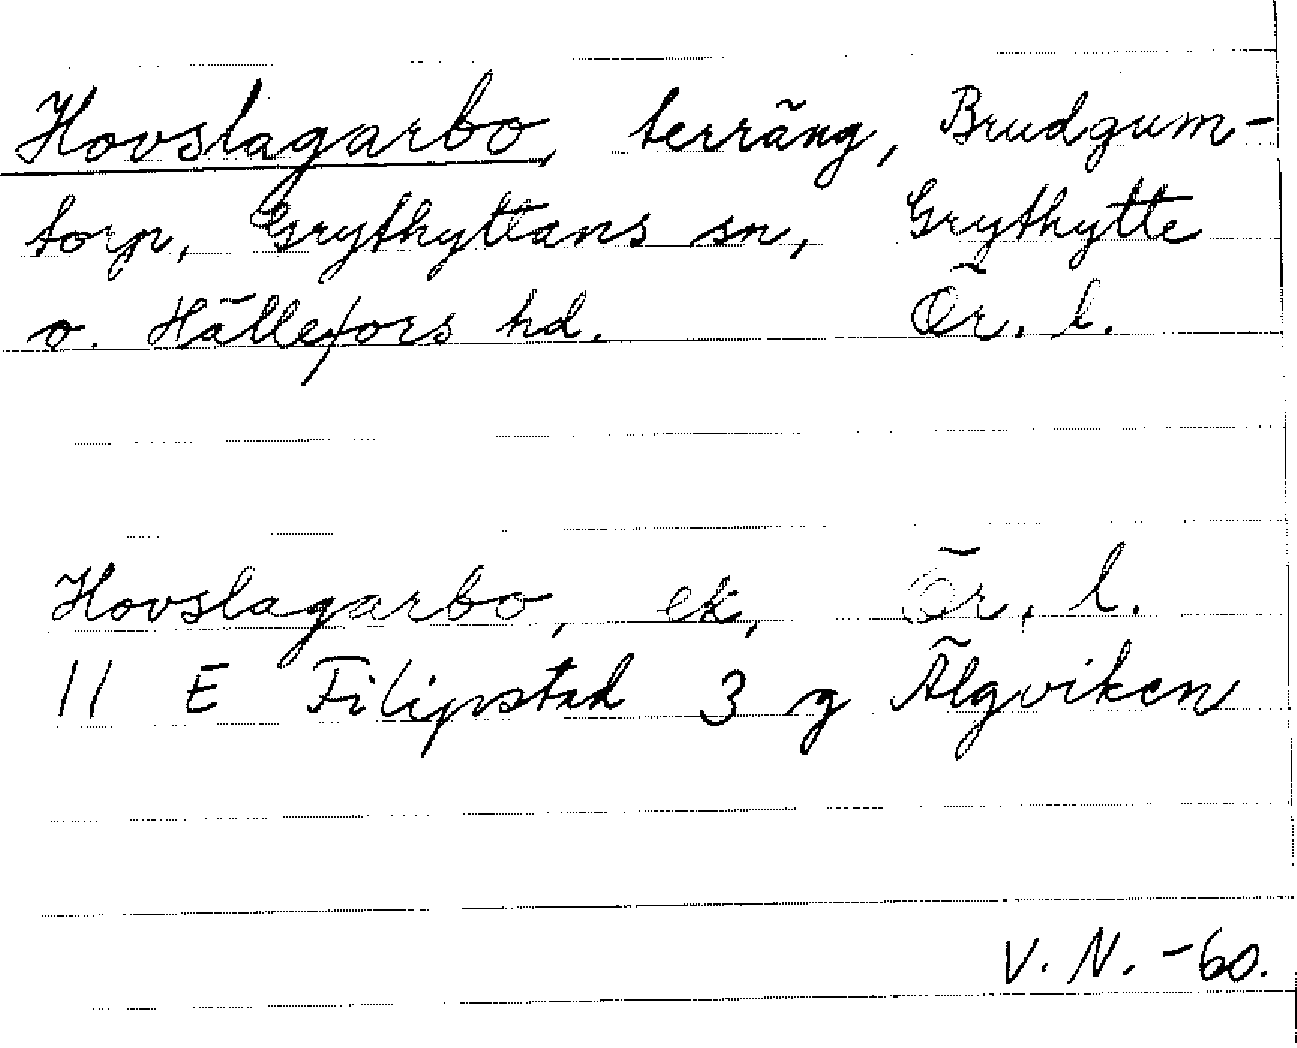 Hovslagarbo, terräng, Brudgum-
torp, Grythyttans sn, Grythytte
o. Hällefors hd. Ör. l.
Hovslagarbo, ek, Ör. l.
11 E Filipstad 3 g Älgviken
V. N. -60.